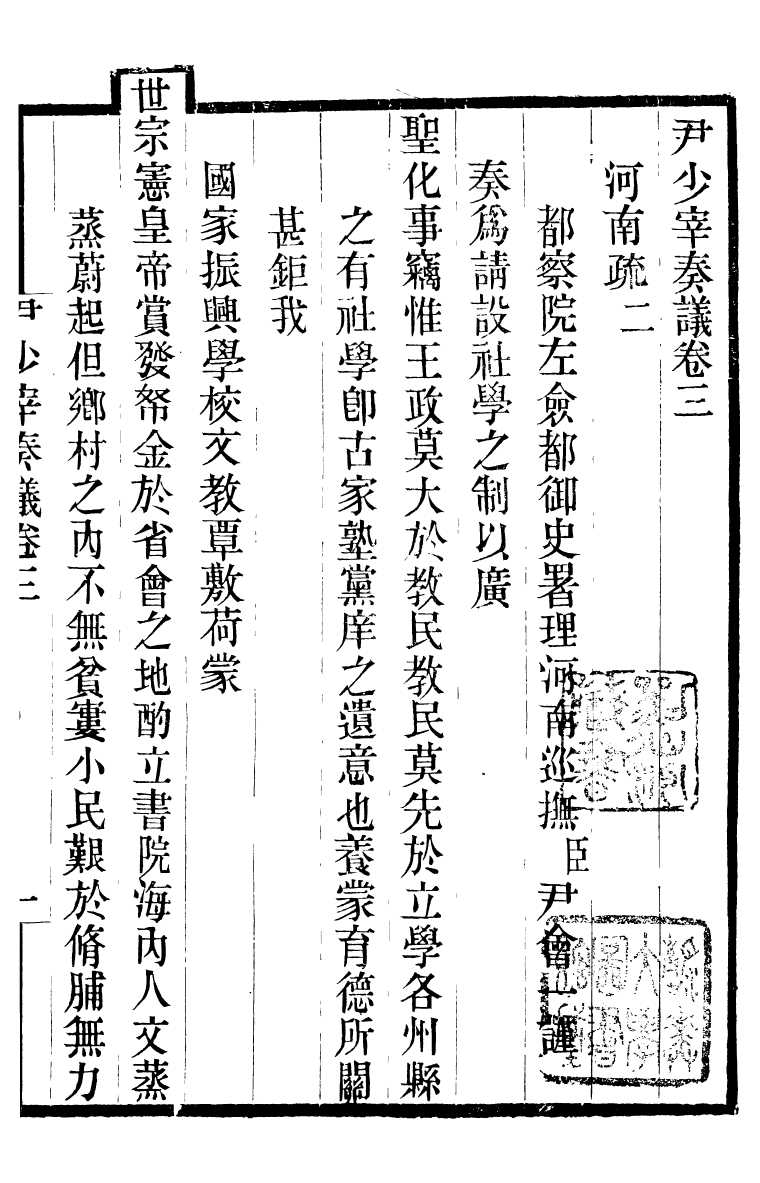 尹少宰奏議卷三
河南疏二
都察院左僉都御史署理河南巡撫臣尹會一謹
奏爲請設社學之制以廣
聖化事竊惟王政莫大於教民教民莫先於立學各州縣
之有社學卽古家塾黨庠之遺意也養蒙育德所關
甚鉅我
國家振興學校文教覃敷荷蒙
世宗憲皇帝賞發帑金於省會之地酌立書院海內人文蒸
蒸蔚起但鄉村之內不無貧寠小民艱於脩脯無力
尹少宰奏議卷三
一